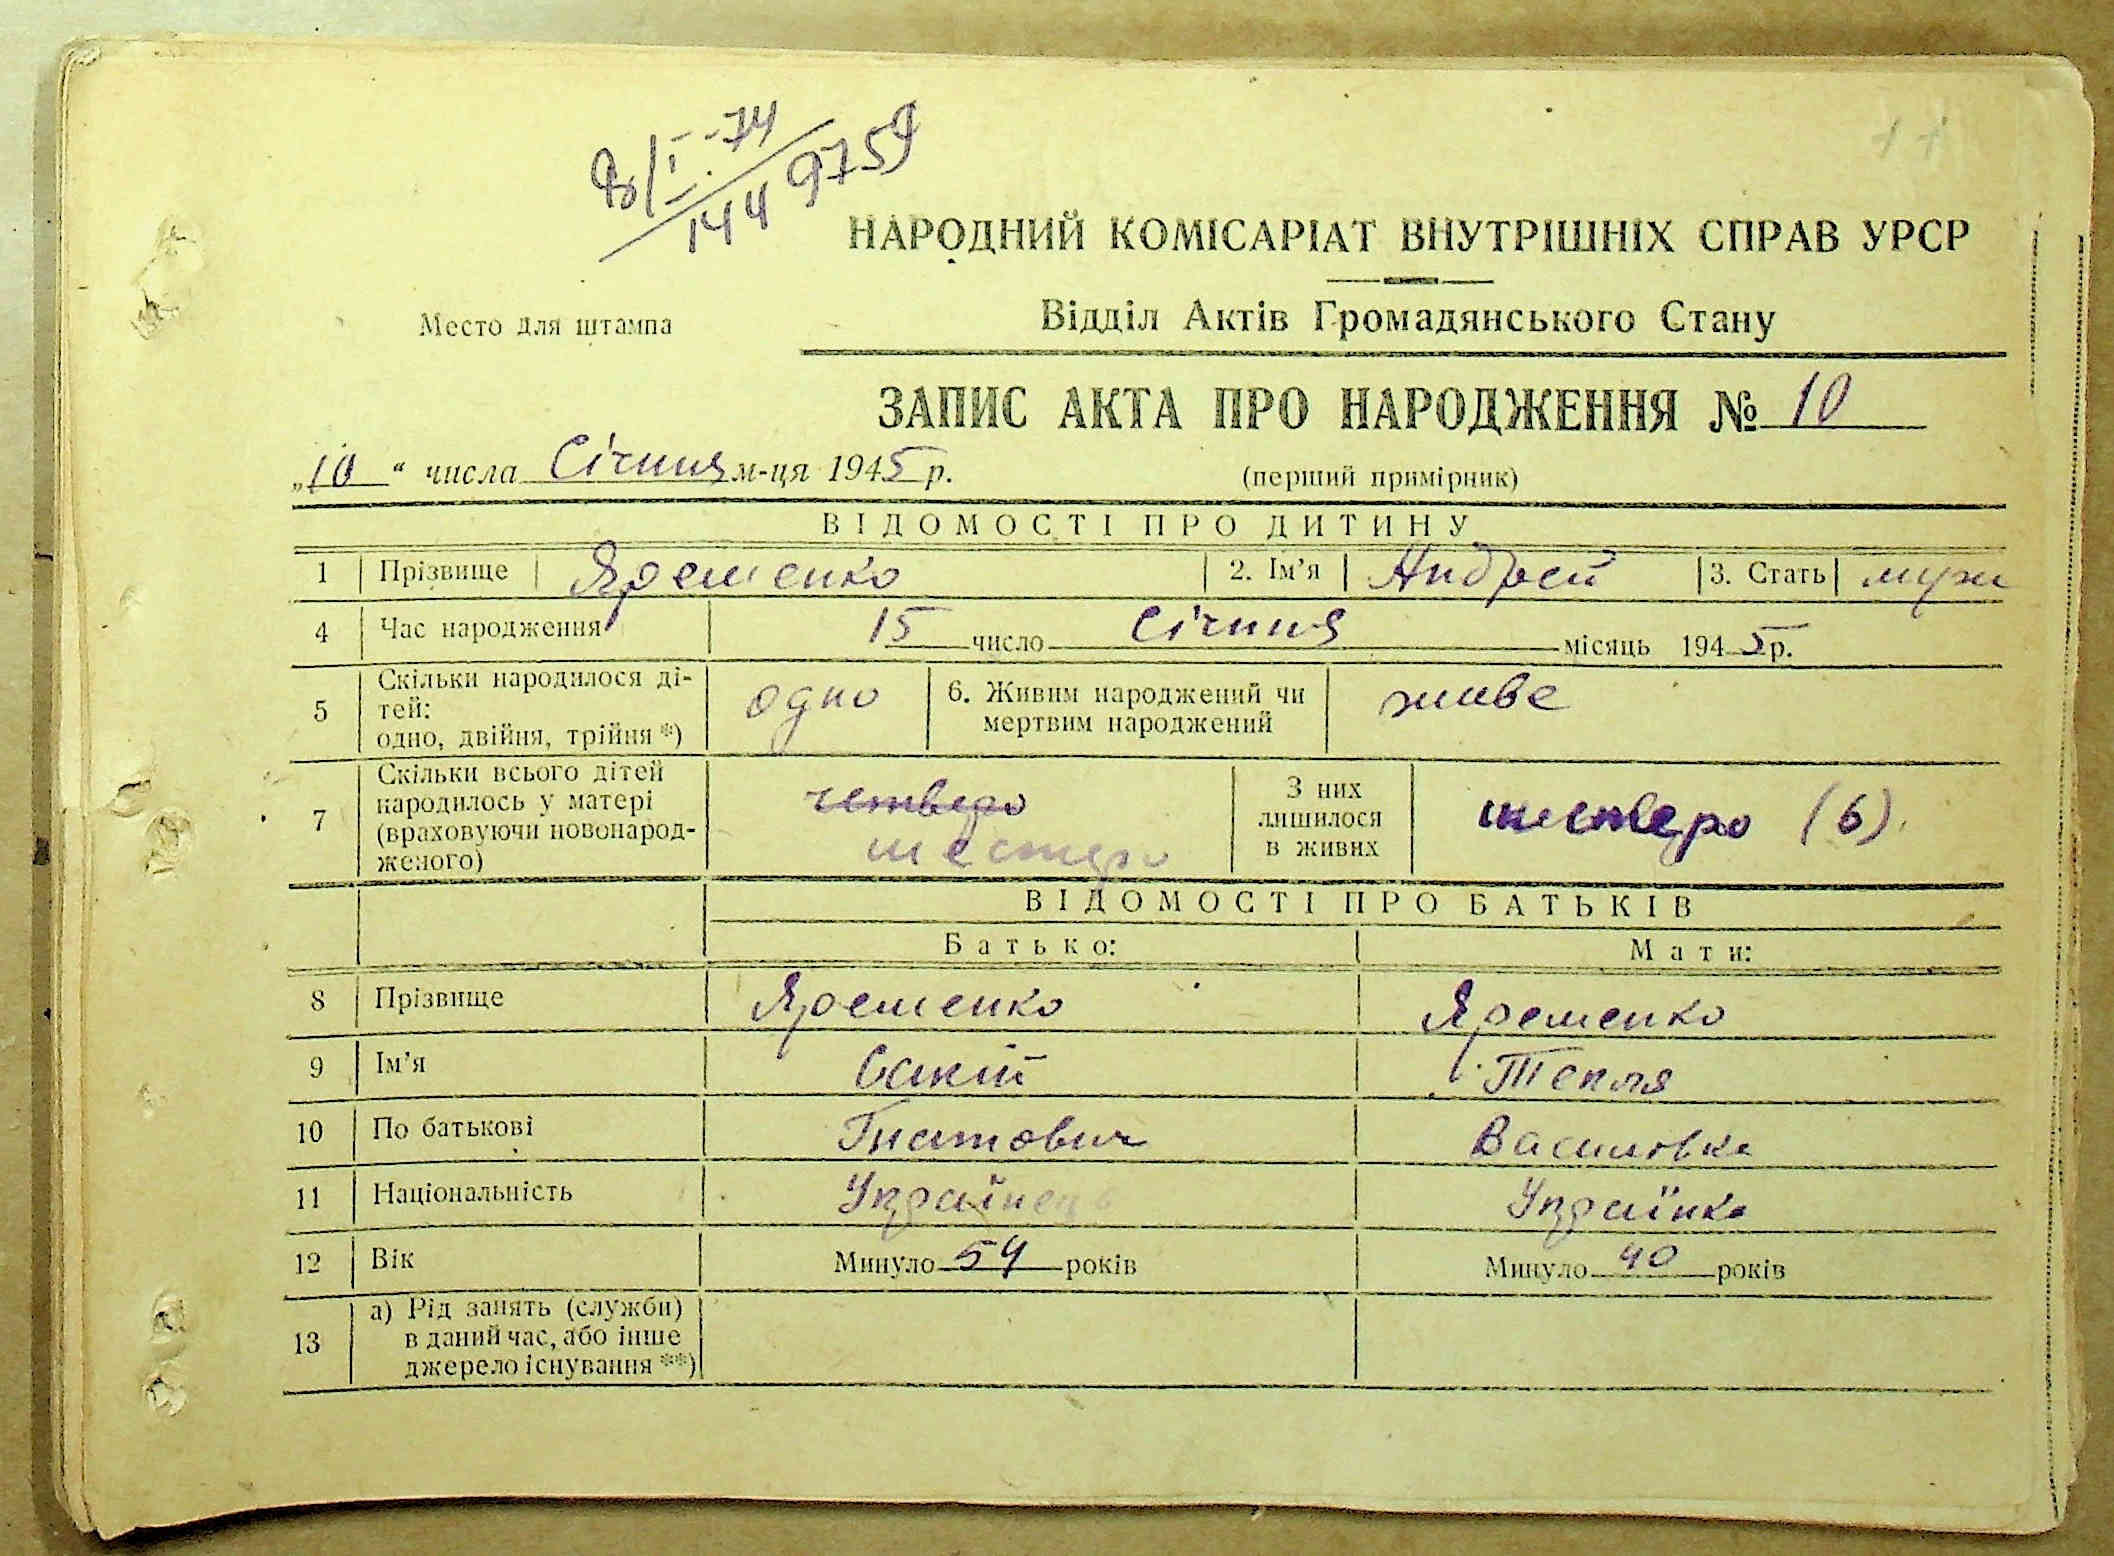 8/I.-74
144 9759
11
НАРОДНИЙ КОМІСАРІАТ ВНУТРІШНІХ СПРАВ УРСР
Место для штампа
Відділ Актів Громадянського Стану
ЗАПИС АКТА ПРО НАРОДЖЕННЯ № 10
„10“ числа Січння м-ця 1945 р. (перший примірник)
ВІДОМОСТІ ПРО ДИТИНУ
1 Прізвище Яременко 2. Ім’я Андрей 3. Стать муж
4 Час народження 15 число Січння місяць 1945 р.
5 Скільки народилося ді-
тей:
одно, двійня, трійня *) одно 6. Живим народжений чи
мертвим народжений живе
7 Скільки всього дітей
народилось у матері
(враховуючи новонарод-
женого) четверо
шестеро
З них
лишилося
в живих шестеро (6).
ВІДОМОСТІ ПРО БАТЬКІВ
Батько: Мати:
8 Прізвище Яременко Яременко
9 Ім’я Сакій Текля
10 По батькові Гнатович Василовка
11 Національність Українець Українка
12 Вік Минуло 54 років Минуло 40 років
13 а) Рід занять (служби)
в даний час, або інше
джерело існування **)